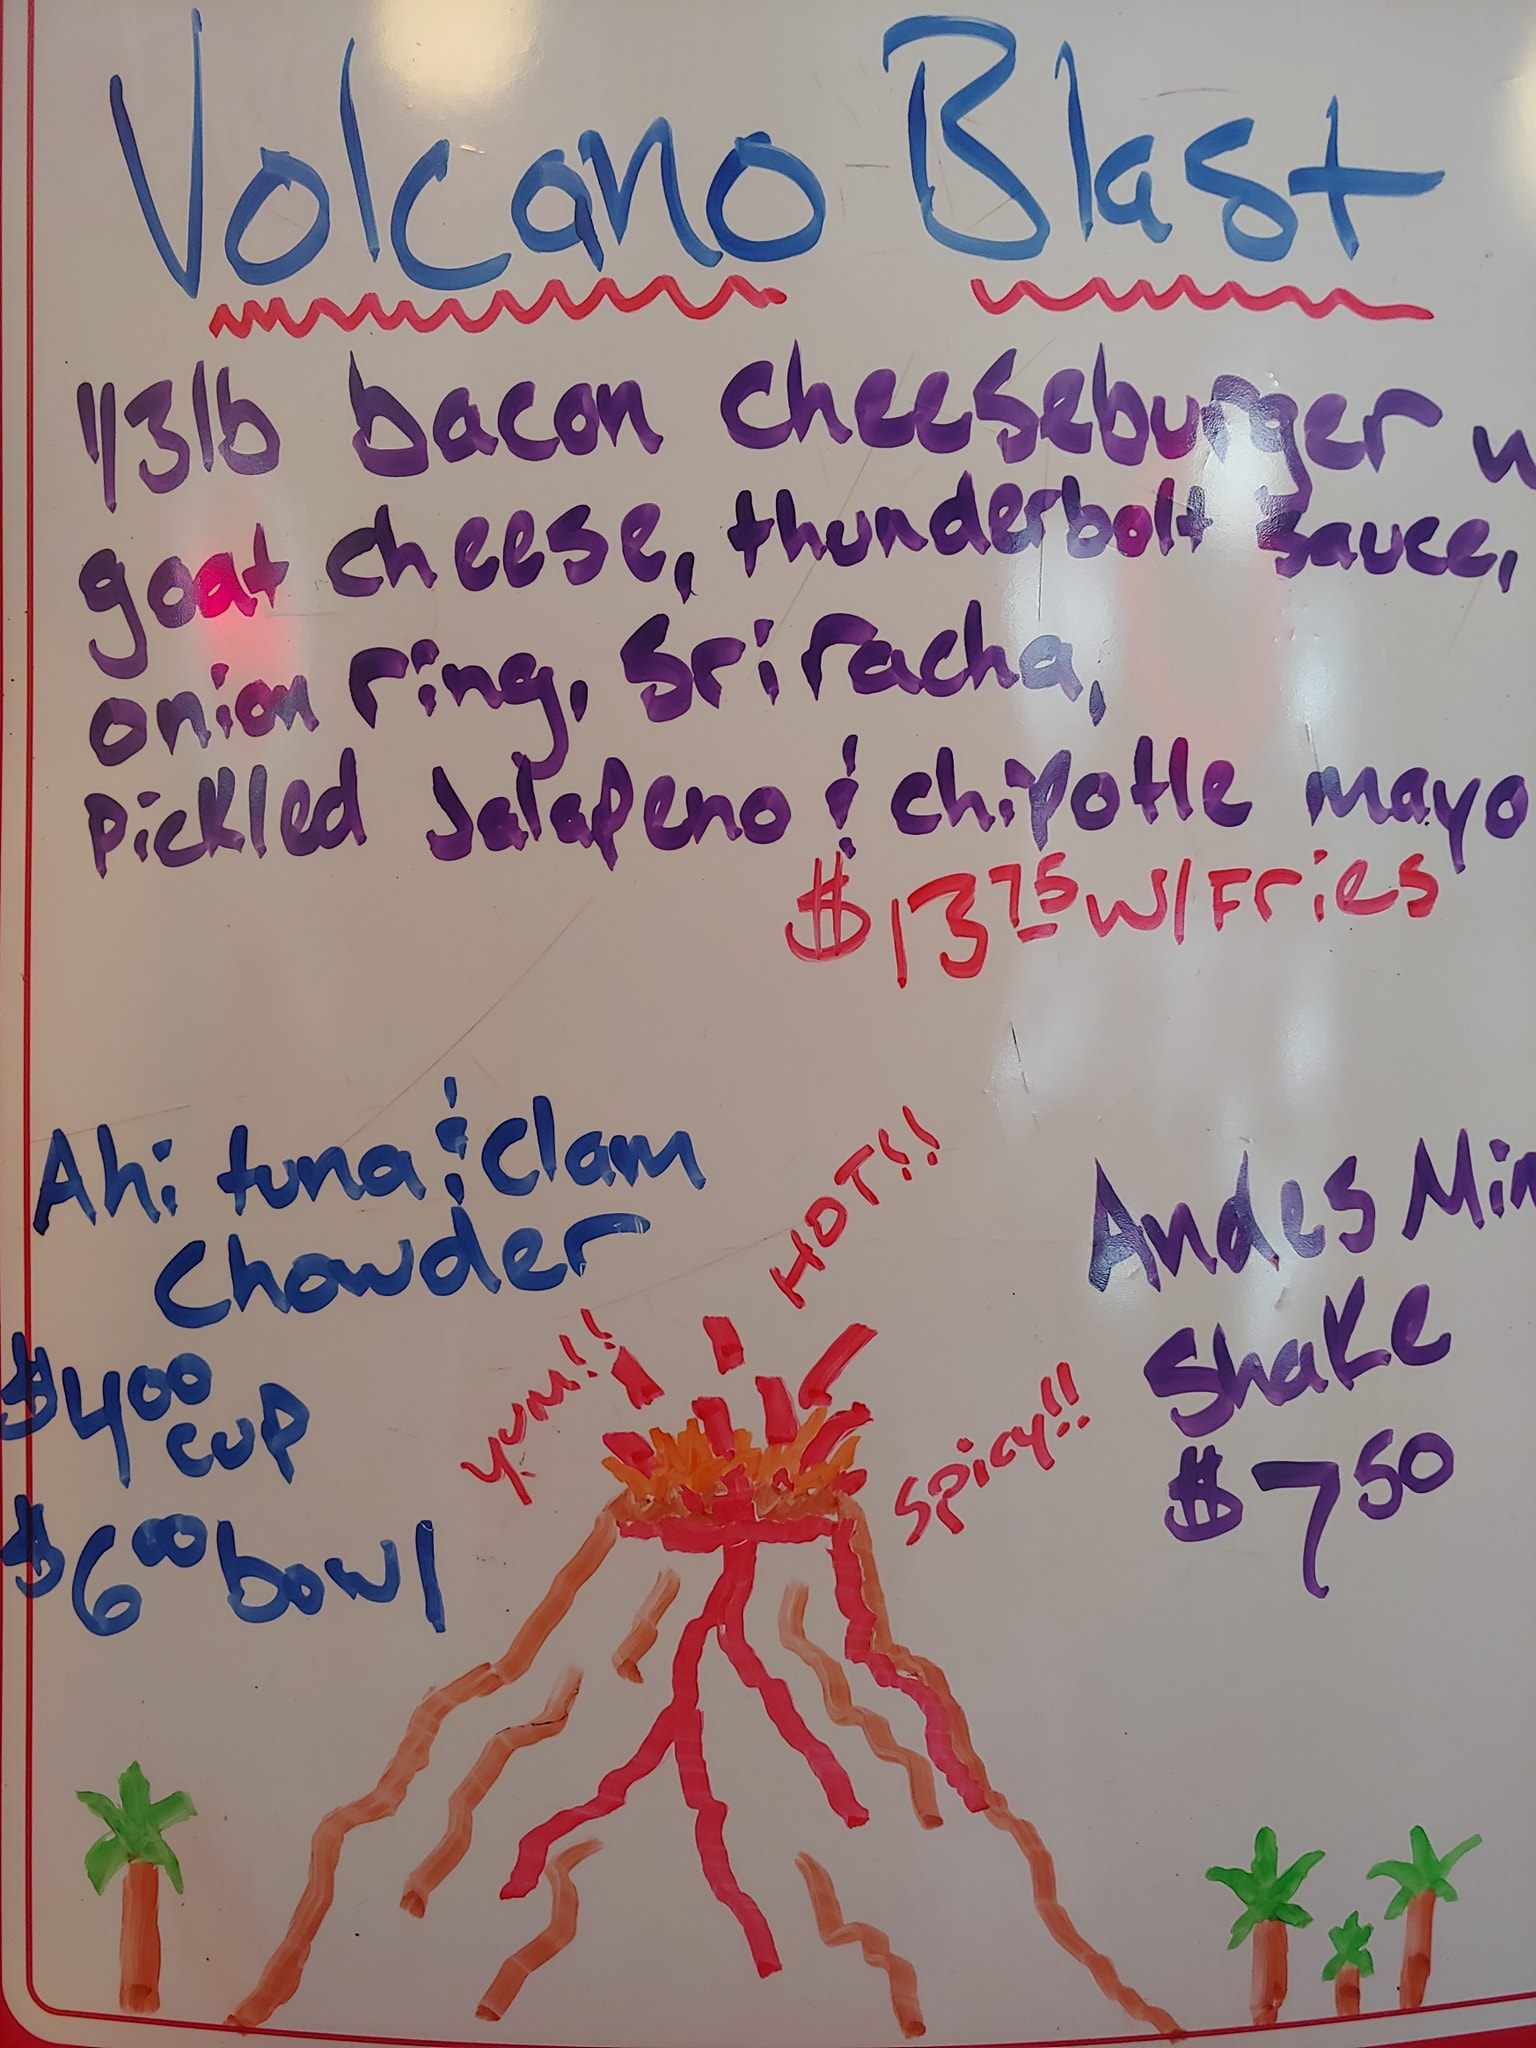 Volcano Blast
1/3lb bacon cheeseburger w
goat cheese, thunderbolt sauce,
onion ring, sriracha,
pickled Jalapeno & chipotle mayo
$13.75 w/ Fries
Ahi tuna & clam
Chowder
$4.00
cup
$6.00 bowl
YUM!!
HOT!!
Spicy!!
Andes Min
Shake
$7.50